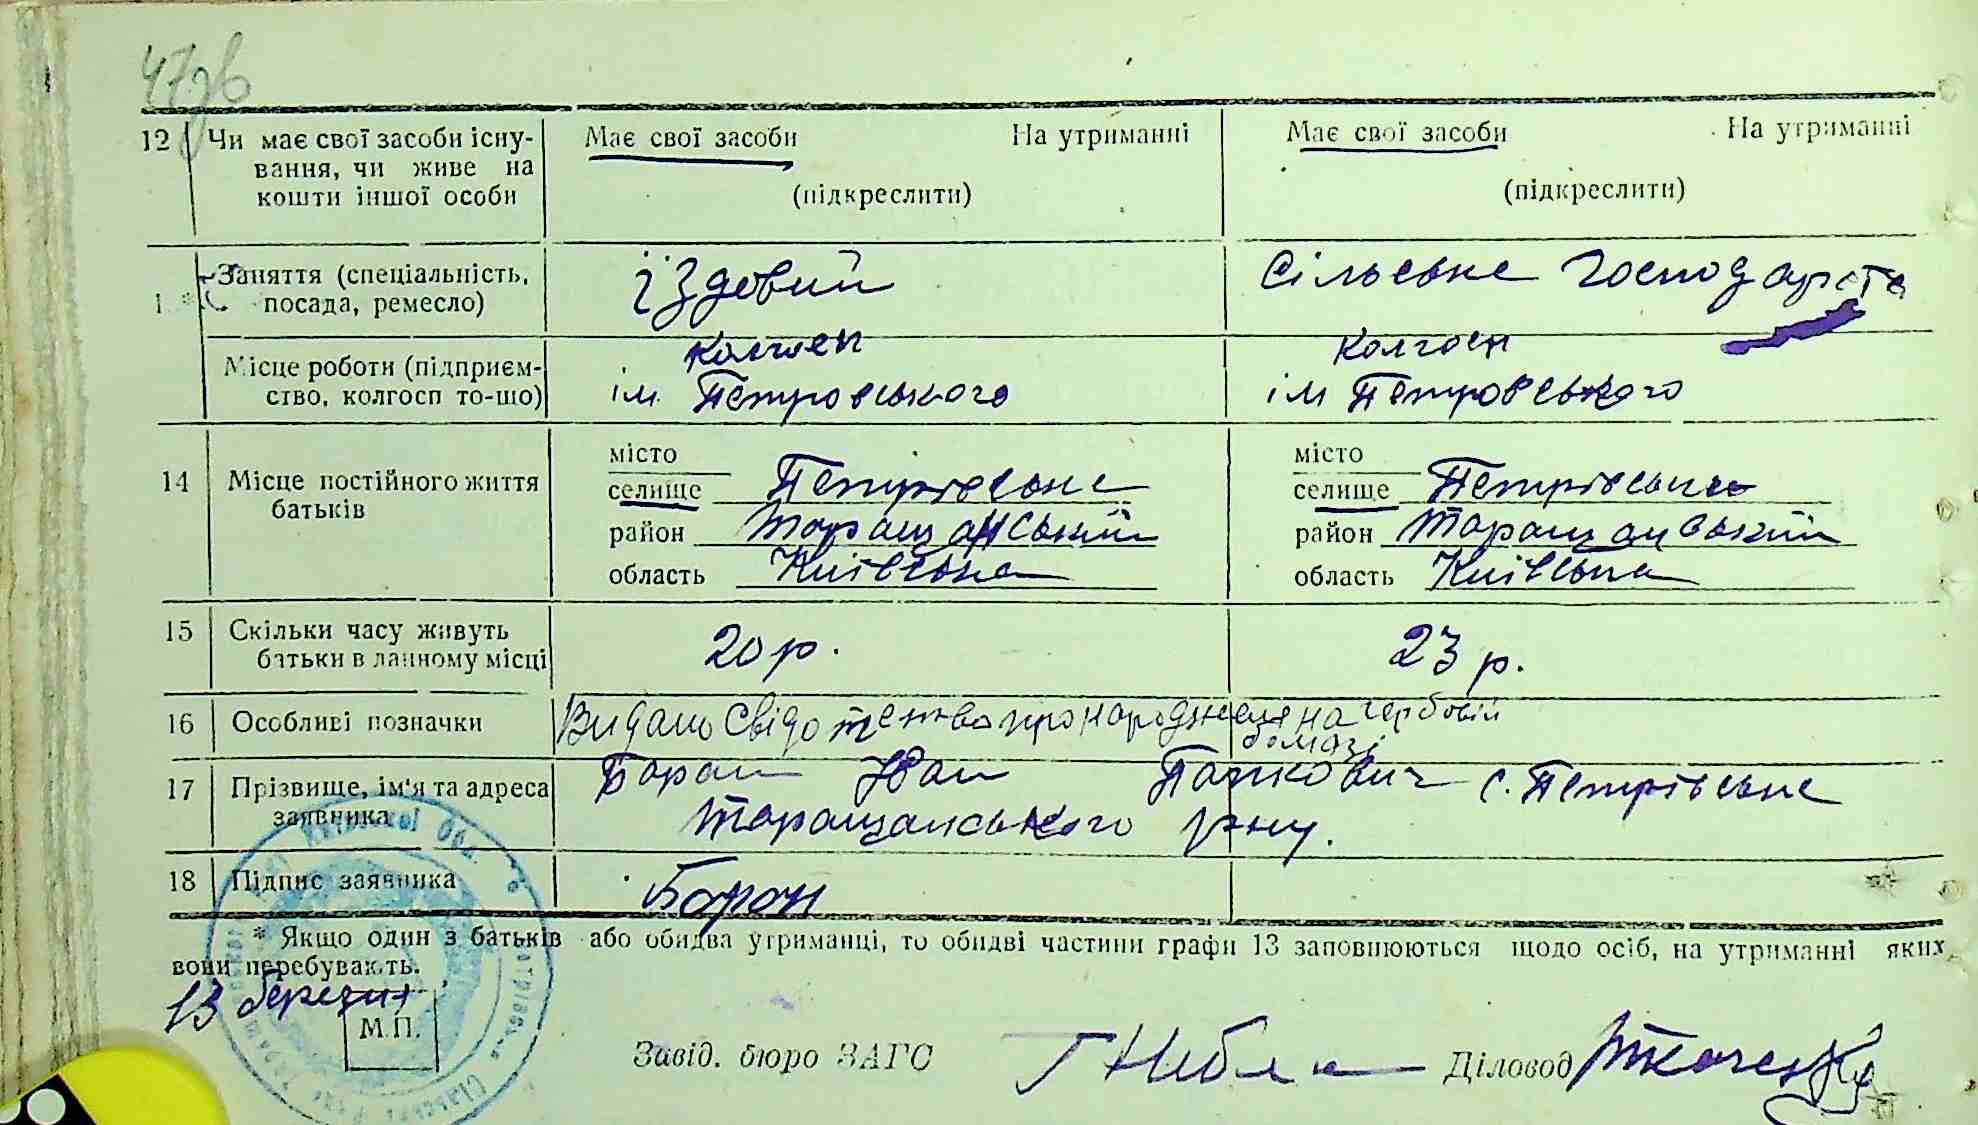 47зв
12 Чи має свої засоби існу- Має свої засоби На утриманні Має свої засоби На утриманні
вання, чи живе на
кошти іншої особи (підкреслити) (підкреслити)
1 * Заняття (спеціальність, їздовий Сільське господарств
посада, ремесло)
Місце роботи (підприєм- колгосп колгосп
ство, колгосп то-що) ім. Петровського ім Петровського
14 Місце постійного життя місто місто
батьків селище Петрівське селище Петрівське
район Таращанський район Таращанський
область Київська область Київська
15 Скільки часу живуть 20 р. 23 р.
батьки в данному місці
16 Особливі позначки Видано свідотство про народження на гербовій
бомазі
17 Прізвище, ім'я та адреса Баран Іван Панкович с. Петрівське
заявника Таращанського р-ну.
18 Підпис заявника Баран
* Якщо один з батьків або обидва утриманці, то обидві частини графи 13 заповнюються щодо осіб, на утриманні яких
вони перебувають.
13 березня
М.П.
Завід. бюро ЗАГС Діловод Ткаченко